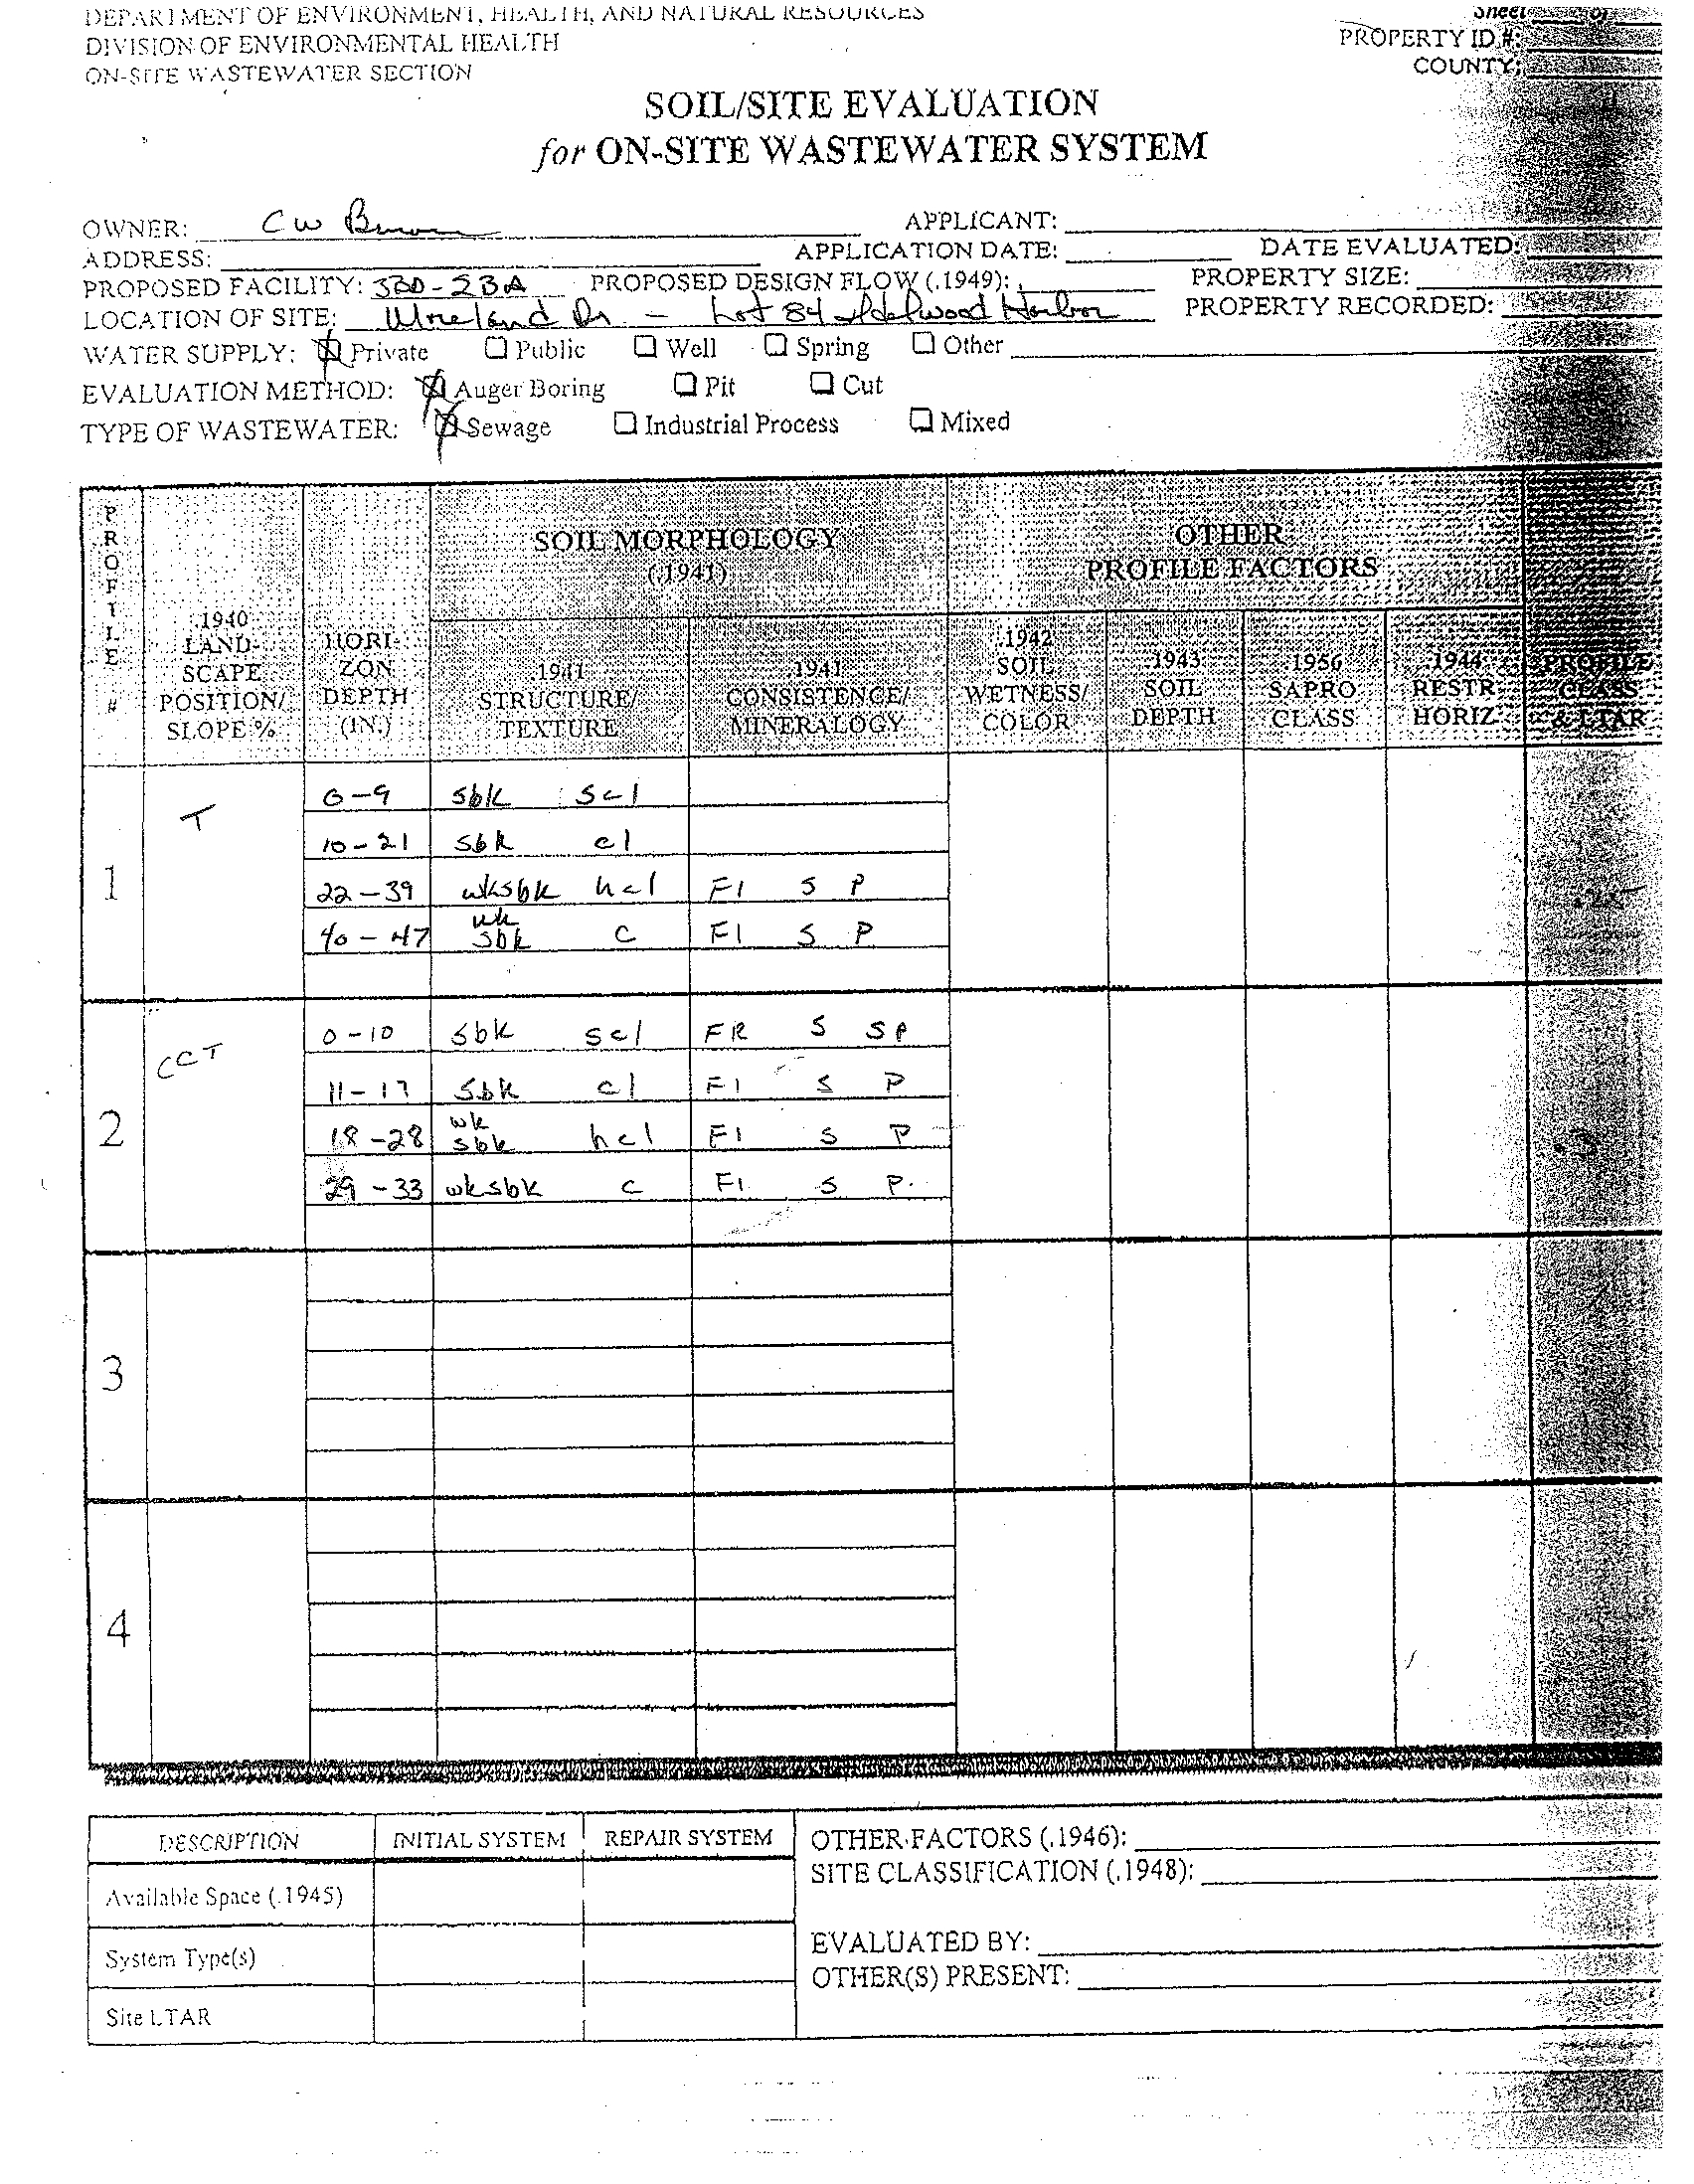 DEPARTMENT OF ENVIRONMENT, HEALTH, AND NATURAL RESOURCES
DIVISION OF ENVIRONMENTAL HEALTH
ON-SITE WASTEWATER SECTION
Sheet of
PROPERTY ID #:
COUNTY:
SOIL/SITE EVALUATION
for ON-SITE WASTEWATER SYSTEM
OWNER: CW APPLICANT:
ADDRESS: APPLICATION DATE: DATE EVALUATED:
PROPOSED FACILITY: 3BD-2BA PROPOSED DESIGN FLOW (.1949): PROPERTY SIZE:
LOCATION OF SITE: Moreland Dr - Lot 84 Harbor PROPERTY RECORDED:
WATER SUPPLY: Private Public Well Spring Other
EVALUATION METHOD: Auger Boring Pit Cut
TYPE OF WASTEWATER: Sewage Industrial Process Mixed
PROFILE #
.1940 LAND-SCAPE POSITION/ SLOPE %
HORI-ZON DEPTH (IN.)
SOIL MORPHOLOGY
(.1941)
.1941 STRUCTURE/ TEXTURE
.1941 CONSISTENCE/ MINERALOGY
OTHER
PROFILE FACTORS
.1942 SOIL WETNESS/ COLOR
.1943 SOIL DEPTH
.1956 SAPRO CLASS
.1944 RESTR HORIZ
PROFILE CLASS & LTAR
1 T
0-9 sbk scl
10-21 sbk cl
22-39 wksbk hcl FI S P
40-47 wk sbk c FI S P
.25
2 CCT
0-10 sbk scl FR S SP
11-17 sbk cl FI S P
18-28 wk sbk hcl FI S P
29-33 wksbk c FI S P.
.3
3
4
DESCRIPTION INITIAL SYSTEM REPAIR SYSTEM
Available Space (.1945)
System Type(s)
Site LTAR
OTHER FACTORS (.1946):
SITE CLASSIFICATION (.1948):
EVALUATED BY:
OTHER(S) PRESENT: